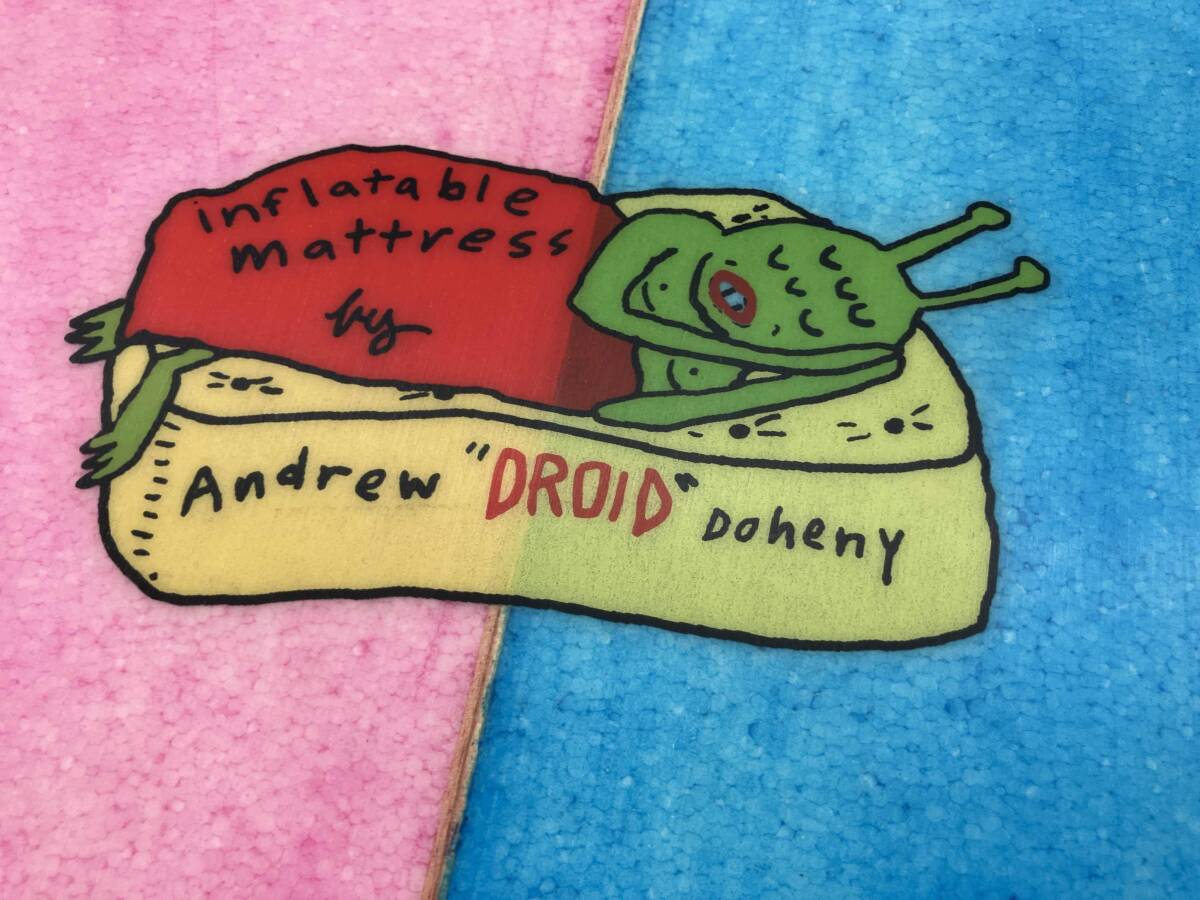 inflatable
mattress
by
Andrew "DROID" Doheny